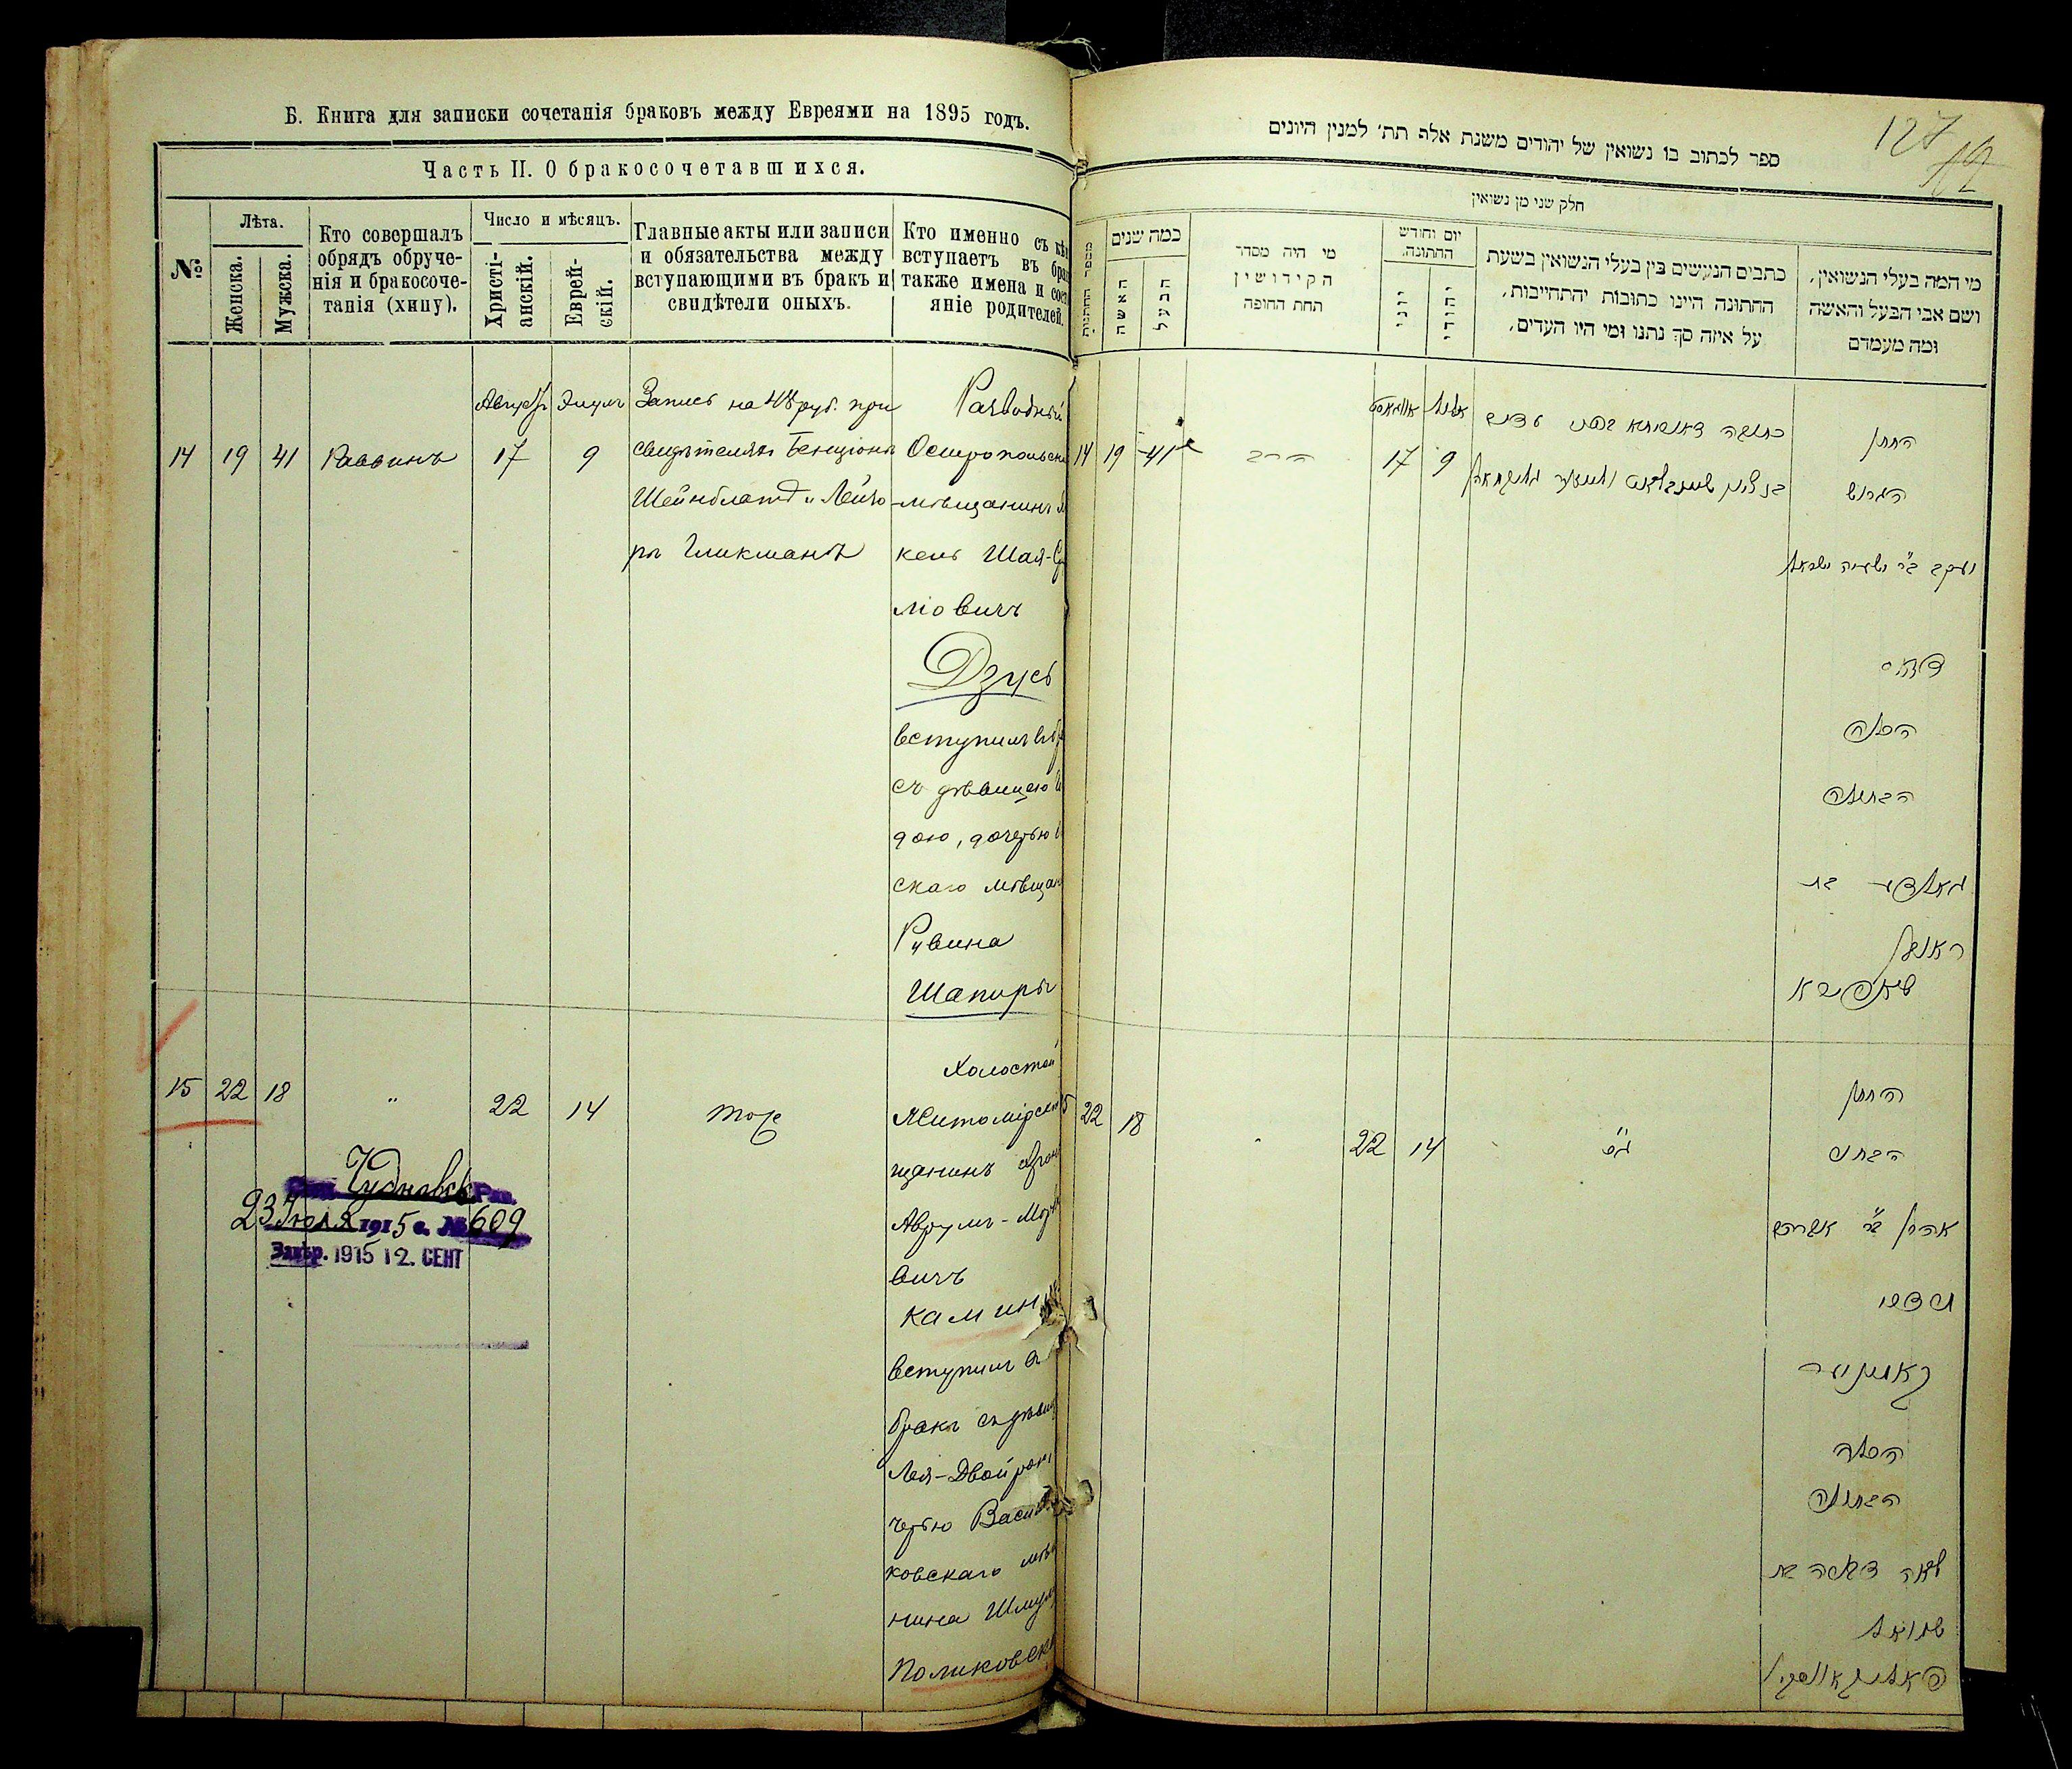 Б. Книга для записки сочетанія браковъ между Евреями на 1895 годъ.
Часть II. О бракосочетавшихся.
№
Лѣта.
Женска.
Мужска.
Кто совершалъ
обрядъ обруче-
нія и бракосоче-
танія (хипу).
Число и мѣсяцъ.
Христі-
анскій.
Еврей-
скій.
Главные акты или записи
и обязательства между
вступающими въ бракъ и
свидѣтели оныхъ.
Кто именно съ кѣ
вступаетъ въ бра
также имена и сос
яніе родителей.
14 19 41 Раввинъ
Августъ 17
Элулъ 9
Запись на 48 руб. при
свидѣтеляхъ Бенціонъ
Шейнблатъ и Лейзо
ръ Гликманъ
Разводный
Остропольскі
мѣщанинъ
кель Шая-Ср
лiовичъ
Дзусь
вступилъ въ бр
съ дѣвицею
дою, дочерью
скаго мѣщан
Рувина
Шапиры
15 22 18 " 22 14 тоже
Холостой
Житомірскій
щанинъ Арон
Аврумъ-Морд
вичъ
Камин
вступилъ въ
бракъ съ дѣвиц
Лея-Двойрою
черью Васил
ковскаго мѣщ
нина Шмул
Поликовск
Чудновск Рав.
23 Июля 1915 г. № 609
Завѣр. 1915 12. СЕНТ
127
ספר לכתוב בו נשואין של יהודים משנת אלף תת׳ למנין היונים
חלק שני מן נשואין
מספר החתונות
כמה שנים
האשה
הבעל
מי היה מסדר
הקידושין
תחת החופה
יום וחודש
החתונה.
יוני
יהודי
כתבים הנעשים בין בעלי הנשואין בשעת
החתונה היינו כתובות יהתחייבות,
על איזה סך נתנו ומי היו העדים,
מי המה בעלי הנשואין,
ושם אבי הבעל והאשה
ומה מעמדם
14 19 41 הרב
אוגוסט 17
אלול 9
החתן
הגרוש
יעקב ב״ר ישעיה ישראל
דזוס
הכלה
הבתולה
גאלדע בת
ראובן
שאפירא
15 22 18 " 22 14 כנ״ל
החתן
הבחור
אהרן ב״ר אברהם
מרדכי
קאמינער
הכלה
הבתולה
לאה דבורה בת
שמואל
פאליקאווסקי